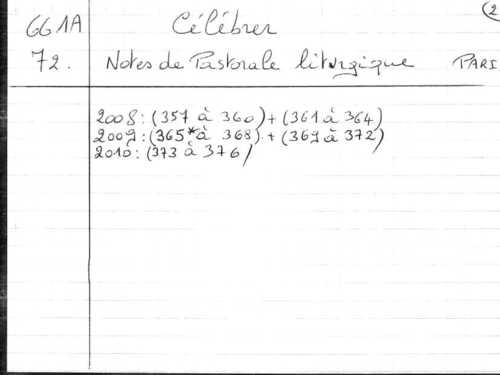 661A Célébrer (2
72. Notes de Pastorale liturgique PARI
2008: (357 à 360) + (361 à 364)
2009: (365* à 368) + (369 à 372)
2010: (373 à 376)